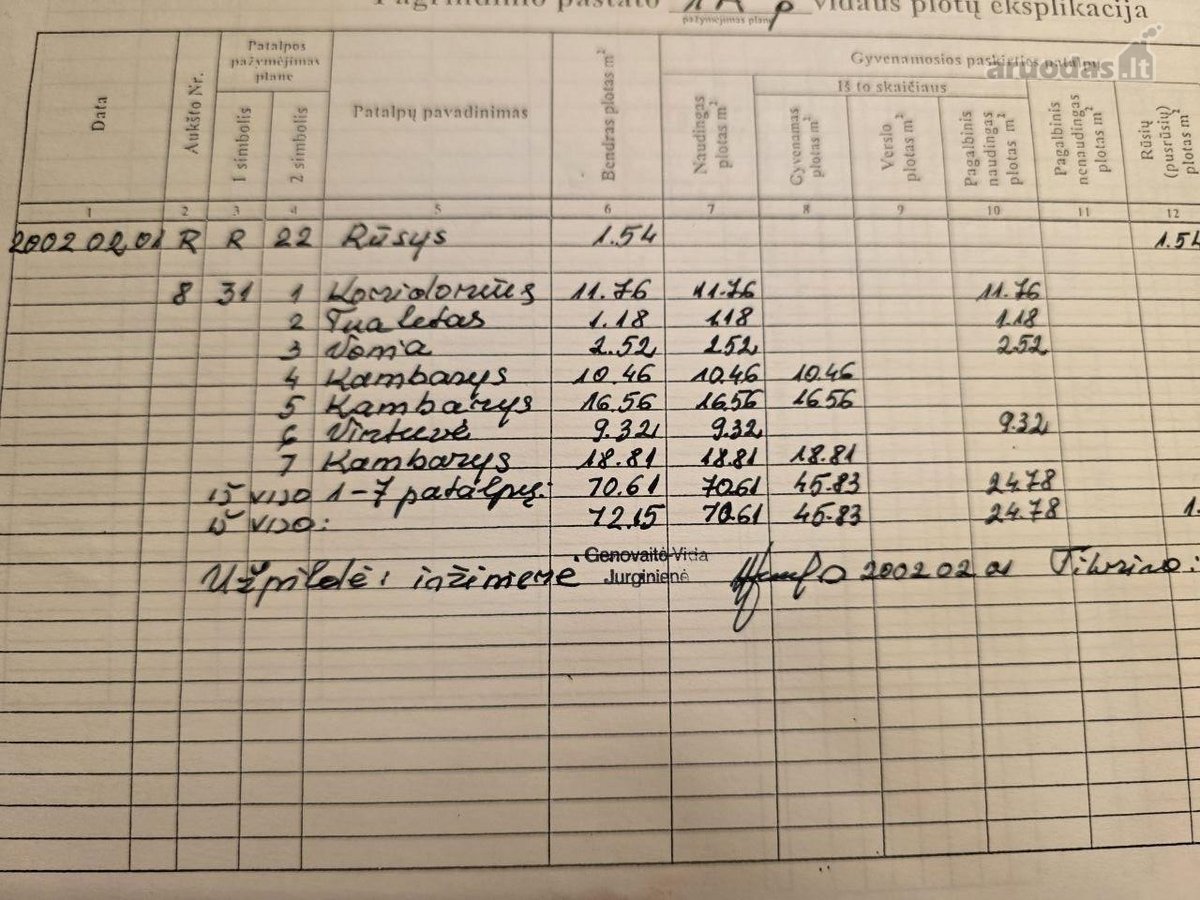 Pagrindinio pastato 1A p vidaus plotų eksplikacija
pažymėjimas plane
aruodas.lt
Data
Aukšto Nr.
Patalpos pažymėjimas plane
1 simbolis
2 simbolis
Patalpų pavadinimas
Bendras plotas m²
Gyvenamosios paskirties patalpų
Naudingas plotas m²
Iš to skaičiaus
Gyvenamas plotas m²
Verslo plotas m²
Pagalbinis naudingas plotas m²
Pagalbinis nenaudingas plotas m²
Rūsių (pusrūsių) plotas m²
1 2 3 4 5 6 7 8 9 10 11 12
2002 02 01 R R 22 Rūsys 1.54 1.54
8 31 1 Koridorius 11.76 11.76 11.76
2 Tualetas 1.18 1.18 1.18
3 Vonia 2.52 2.52 2.52
4 Kambarys 10.46 10.46 10.46
5 Kambarys 16.56 16.56 16.56
6 Virtuvė 9.32 9.32 9.32
7 Kambarys 18.81 18.81 18.81
iš viso 1-7 patalpų: 70.61 70.61 45.83 24.78
iš viso: 72.15 70.61 45.83 24.78 1.
Užpildė: inžinierė Genovaitė Vida Jurginienė 2002 02 01 Tikrino: